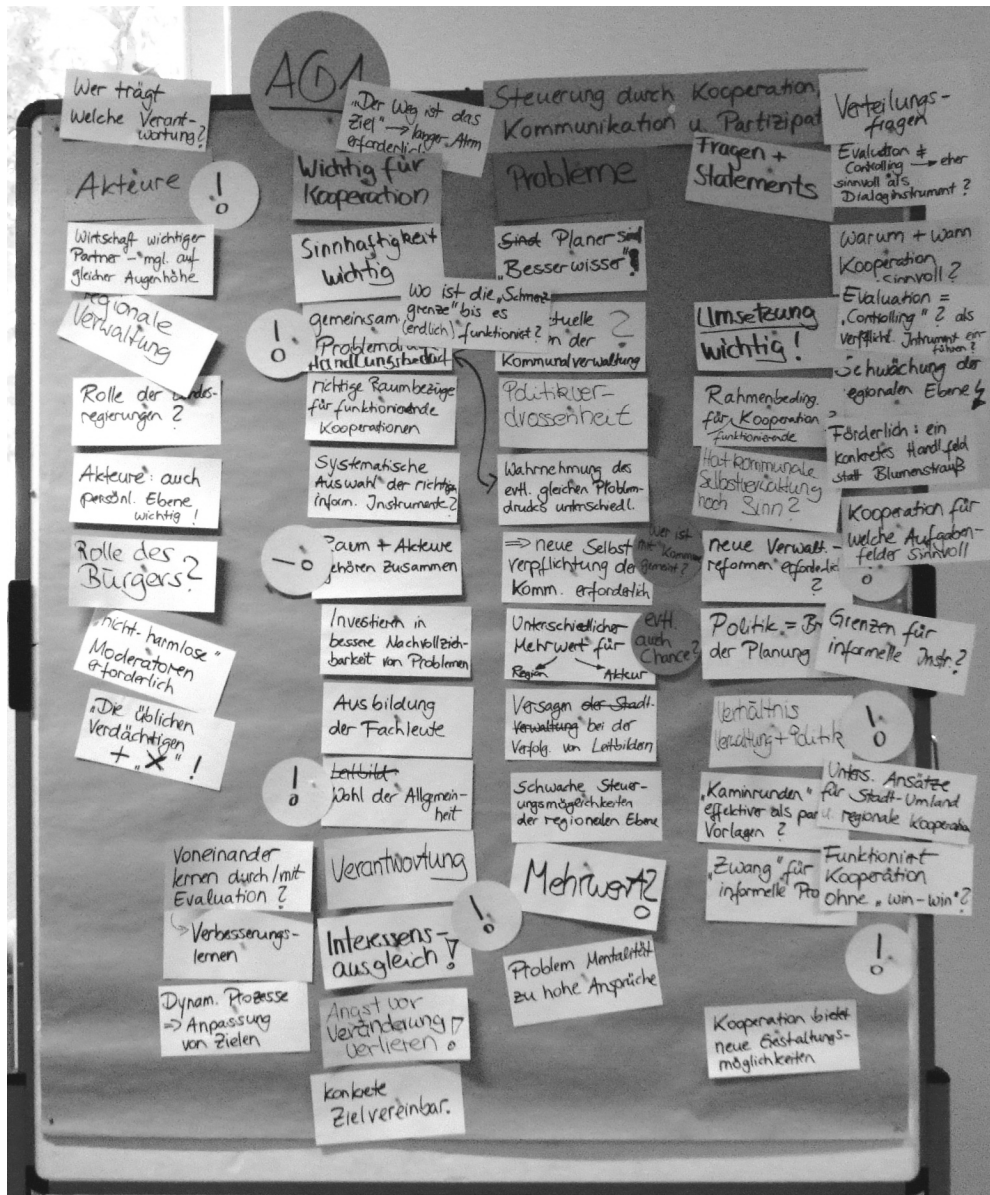 AG1
Steuerung durch Kooperation,
Kommunikation
u. Partizipat
Wer trägt
welche Verant-
wortung?
Akteure
!
Wirtschaft wichtiger
Partner – mgl. auf
gleicher Augenhöhe
regionale
Verwaltung
Rolle der
regierungen?
Akteure: auch
persönl. Ebene
wichtig!
Rolle des
Bürgers?
"nicht-harmlose"
Moderatoren
erforderlich
"Die üblichen
Verdächtigen
+ "X"!
Voneinander
lernen durch/mit
Evaluation?
Verbesserungs-
lernen
Dynam. Prozesse
⇒ Anpassung
von Zielen
"Der Weg ist das
Ziel" → langer Atem
erforderlich
Wichtig für
Kooperation
Sinnhaftigkeit
wichtig
Wo ist die "Schmerz
grenze" bis es
(endlich) funktioniert?
!
gemeinsam
Problemdru
Handlungsbedarf
richtige Raumbezüge
für funktionierende
Kooperationen
Systematische
Auswahl der richtigen
inform. Instrumente?
!
Raum + Akteure
gehören zusammen
Investieren in
bessere Nachvollzieh-
barkeit von Problemen
Ausbildung
der Fachleute
!
Leitbild
Wohl der Allgemein-
heit
Verantwortung
!
Interessens-
ausgleich!
Angst vor
Veränderung
verlieren!
konkrete
Zielvereinbar.
Probleme
Sind Planer sind
"Besserwisser"!
tuelle ?
n der
Kommunalverwaltung
Politikver-
drossenheit
Wahrnehmung des
evtl. gleichen Problem-
drucks unterschiedl.
⇒ neue Selbst
verpflichtung der
Komm. erforderlich
Wer ist
mit "Komm
gemeint?
Unterschiedlicher
Mehrwert für
Region Akteur
evtl.
auch
Chance?
Versagen der Stadt-
verwaltung bei der
Verfolg. von Leitbildern
Schwache Steuer-
ungsmöglichkeiten
der regionalen Ebene
Mehrwert?
Problem Mentalität
zu hohe Ansprüche
Fragen +
Statements
Umsetzung
wichtig!
Rahmenbeding.
für Kooperation?
funktionierende
Hat kommunale
Selbstverwaltung
noch Sinn?
neue Verwalt.-
reformen erforderlich
?
Politik = Br
der Planung
Verhältnis
Verwaltung + Politik
!
"Kaminrunden"
effektiver als par
Vorlagen?
"Zwang" für
informelle Pro
Kooperation bietet
neue Gestaltungs-
möglichkeiten
Verteilungs-
fragen
Evaluation ≠
Controlling → eher
sinnvoll als
Dialoginstrument?
Warum + wann
Kooperation
sinnvoll?
Evaluation =
"Controlling"? als
verpflicht. Intrument ein-
führen?
Schwächung der
regionalen Ebene
Förderlich: ein
konkretes Handl.feld
statt Blumenstrauß
Kooperation für
welche Aufgaben-
felder sinnvoll
Grenzen für
informelle Instr.?
Unters. Ansätze
für Stadt-Umland
u. regionale Kooperation
Funktioniert
Kooperation
ohne "win-win"?
!